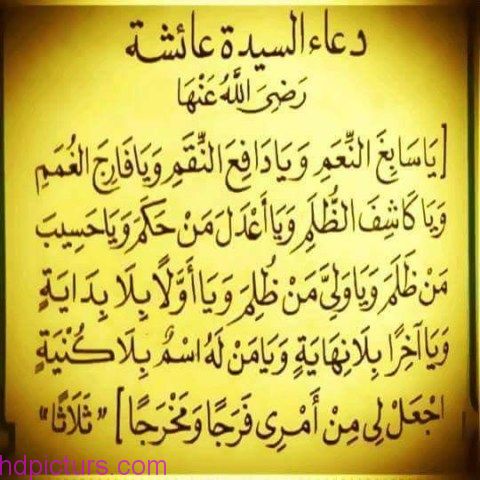 دعاء السيدة عائشة
رَضِيَ اللَّهُ عَنْهَا
[يَا سَابِغَ النِّعَمِ وَيَا دَافِعَ النِّقَمِ وَيَا فَارِجَ الغُمَمِ
وَيَا كَاشِفَ الظُّلَمِ وَيَا أَعْدَلَ مَنْ حَكَمَ وَيَا حَسِيبَ
مَنْ ظَلَمَ وَيَا وَلِيَّ مَنْ ظُلِمَ وَيَا أَوَّلًا بِلَا بِدَايَةٍ
وَيَا آخِرًا بِلَا نِهَايَةٍ وَيَا مَنْ لَهُ اسْمٌ بِلَا كُنْيَةٍ
اجْعَلْ لِي مِنْ أَمْرِي فَرَجًا وَمَخْرَجًا] "ثَلَاثًا"
hdpicturs.com